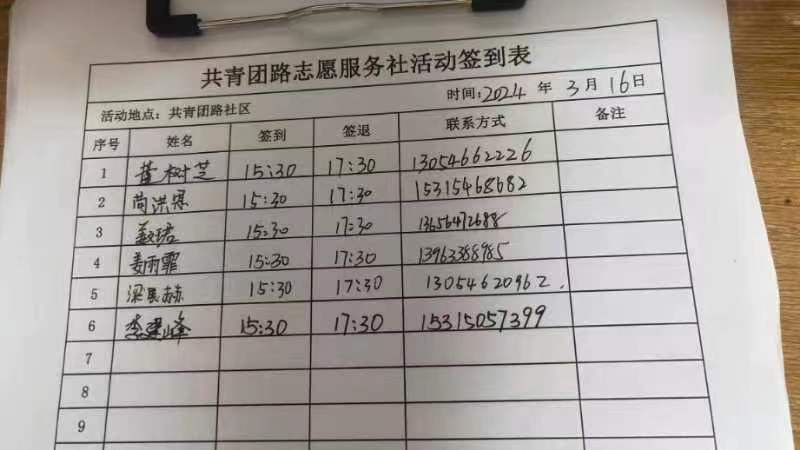 共青团路志愿服务社活动签到表
活动地点：共青团路社区 时间：2024 年 3 月 16 日
序号 姓名 签到 签退 联系方式 备注
1 董树芝 15:30 17:30 13054662226
2 15:30 17:30 15315468682
3 15:30 17:30 13656472688
4 姜雨霏 15:30 17:30 13963388985
5 梁 赫 15:30 17:30 13054620962
6 李建峰 15:30 17:30 15315057399
7
8
9